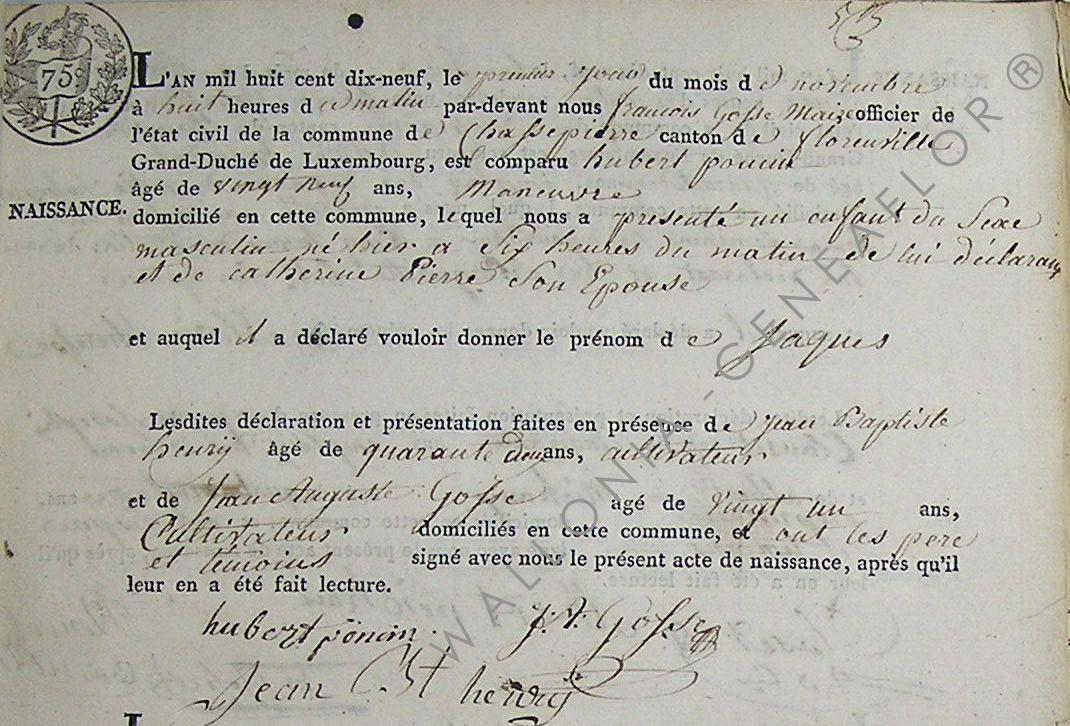 75c
L'AN mil huit cent dix-neuf, le premier jour du mois de novembre
à huit heures du matin par-devant nous francois Gosse Maire officier de
l'état civil de la commune de Chassepierre canton de florenville
Grand-Duché de Luxembourg, est comparu hubert poncin
âgé de vingt neuf ans, Maneuvre
NAISSANCE.
domicilié en cette commune, lequel nous a presenté un enfant du Sexe
masculin né hier a Six heures du matin de lui déclarant
et de catherine Pierre Son Epouse
et auquel il a déclaré vouloir donner le prénom de Jaques
Lesdites déclaration et présentation faites en présence de jean Baptiste
henrij âgé de quarante deux ans, cultivateur
et de Jean Auguste Gosse âgé de vingt un ans,
Cultivateurs domiciliés en cette commune, et ont les pere
et témoins signé avec nous le présent acte de naissance, après qu'il
leur en a été fait lecture.
hubert ponin. J: A: Gosse
Jean Bt henrij
WALLONIA-GENEAFLOR ®